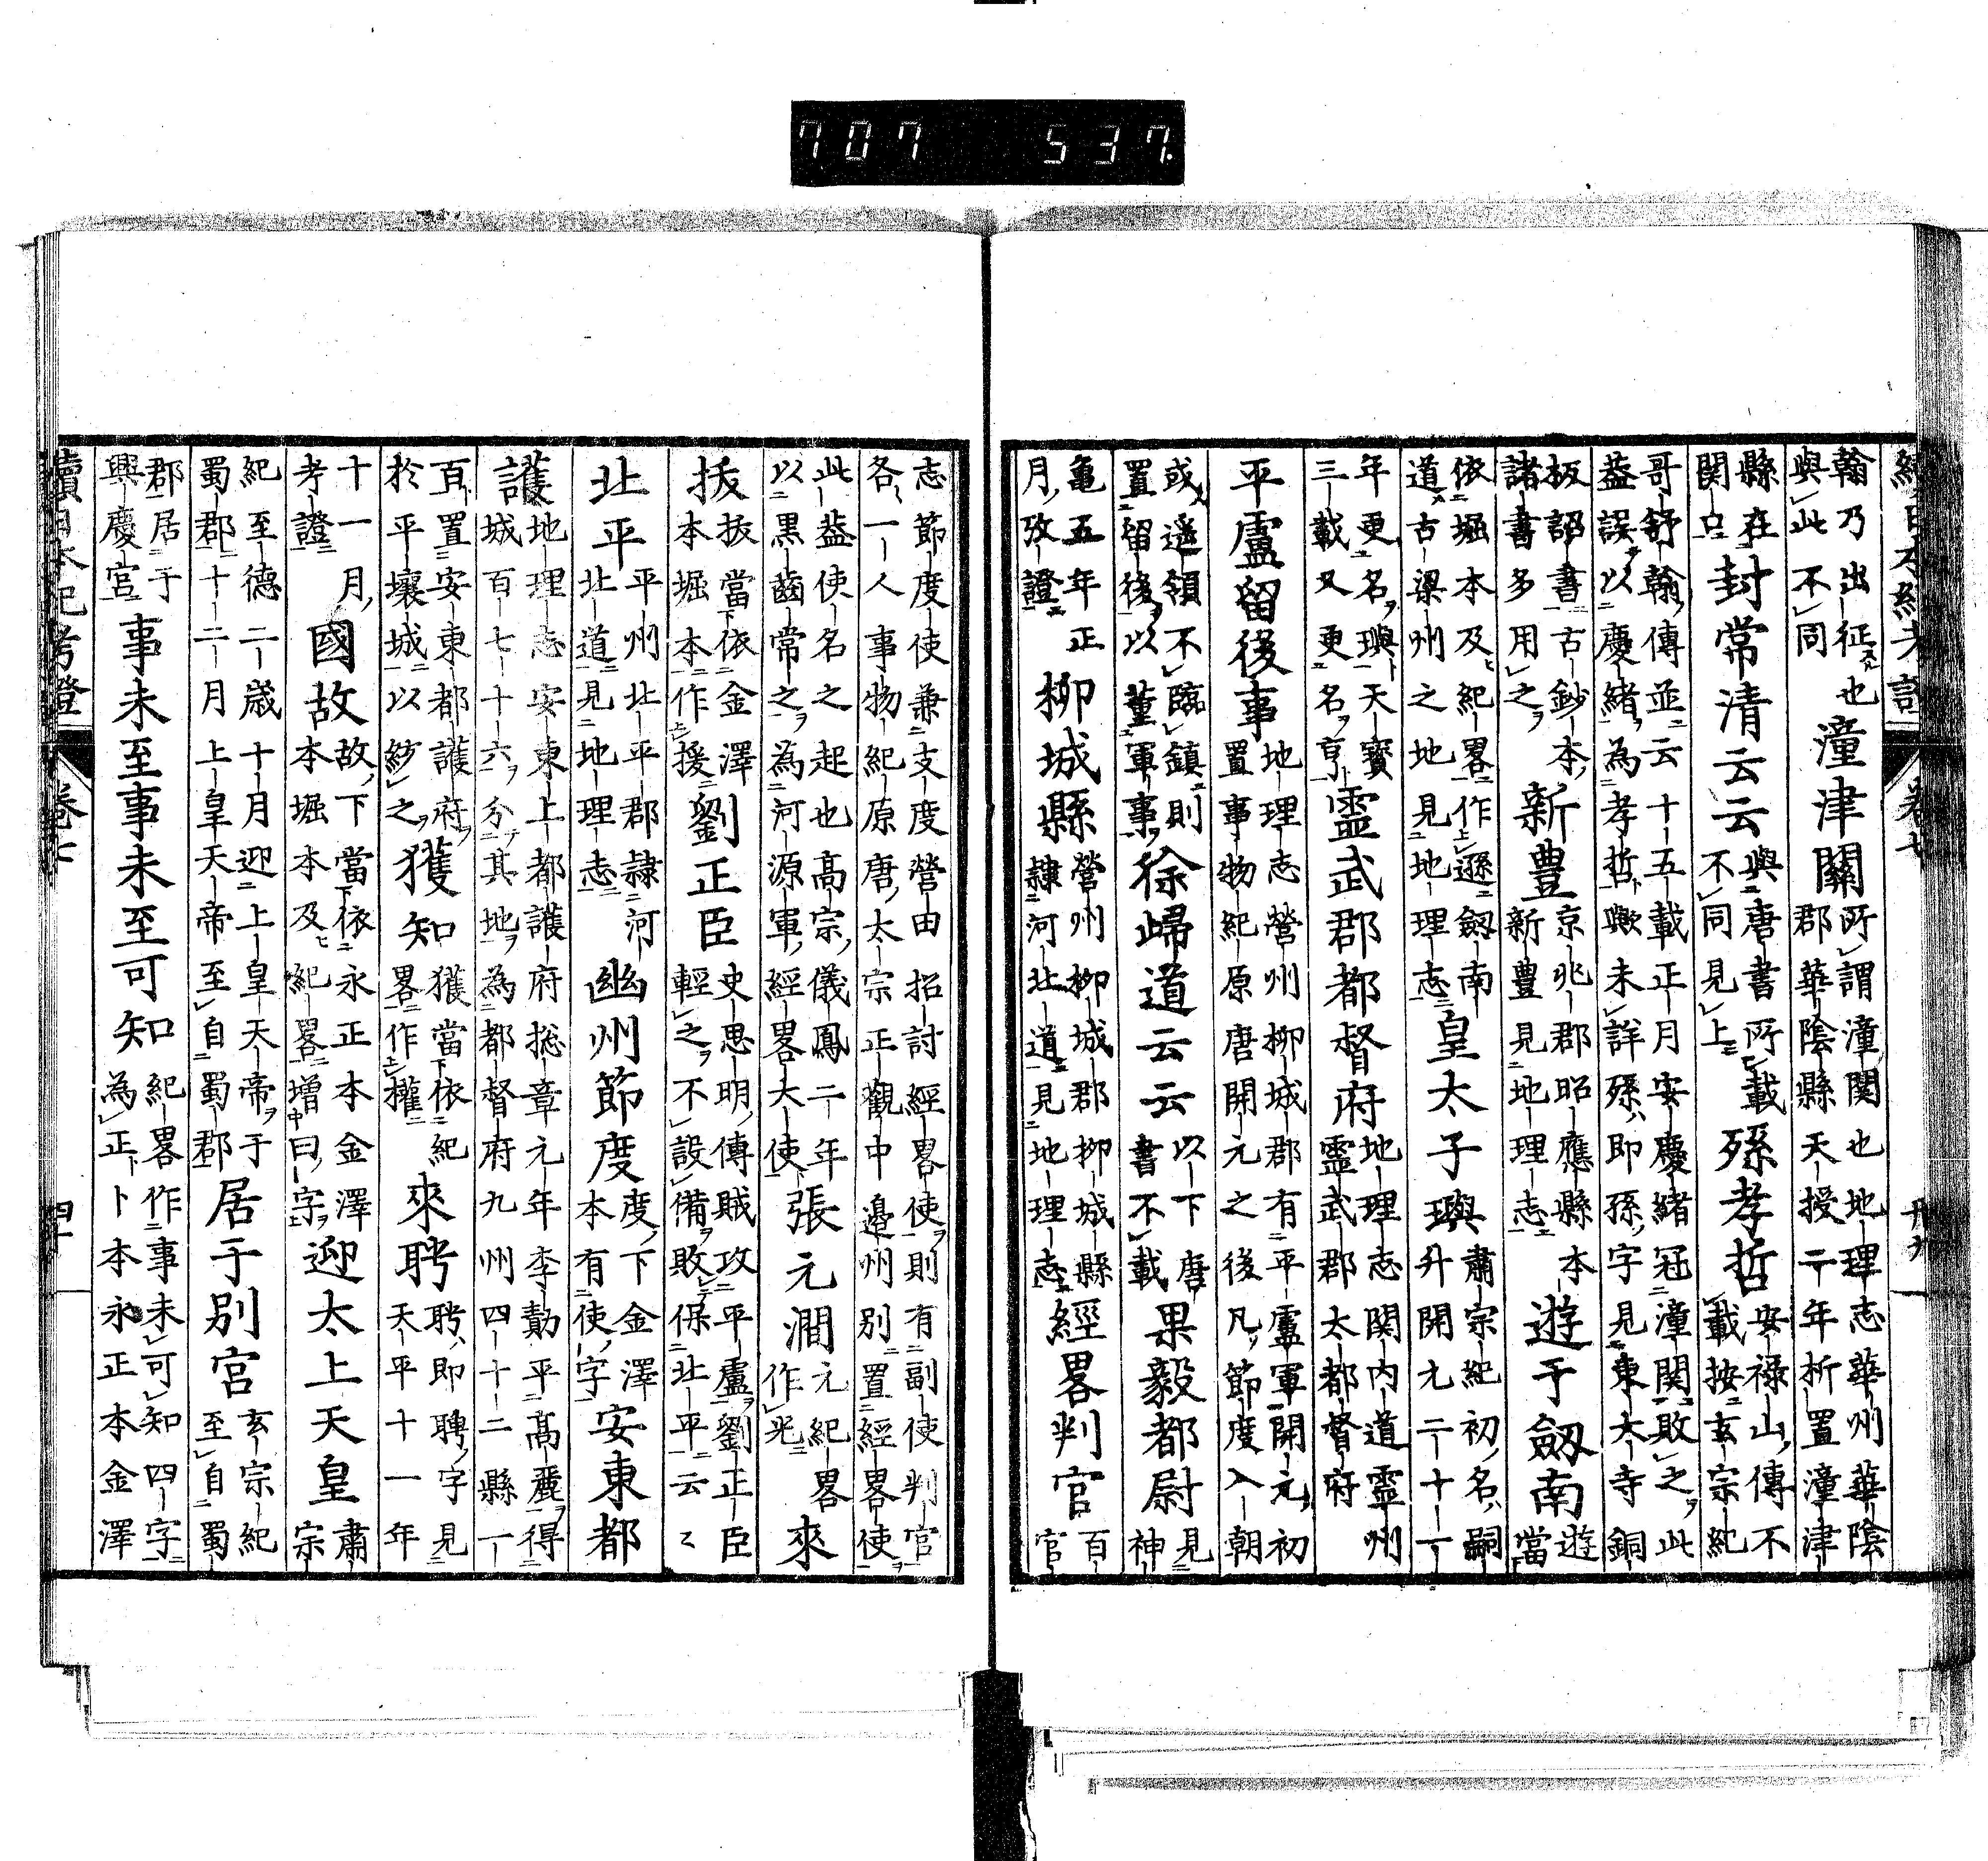 707 537
續日本紀考證 卷七 卅九
翰乃出征也
與此不同
潼津關
所謂潼関也地理志華州華陰
郡華陰縣天授二年析置潼津
縣在
関口
封常清云云
與唐書所載
不同見上
孫孝哲
安禄山傳不
載按玄宗紀
哥舒翰傳並云十五載正月安慶緒冦潼関敗之此
葢誤以慶緒為孝哲歟未詳孫即孫字見東大寺銅
板詔書古鈔本
諸書多用之
新豊
京兆郡昭應縣本
新豊見地理志
遊于劔南
遊
當
依堀本及紀畧作遜劔南
道古梁州之地見地理志
皇太子璵
肅宗紀初名嗣
升開元二十一
年更名璵天寳
三載又更名亨
靈武郡都督府
地理志関内道靈州
靈武郡太都督府
平盧留後事
地理志營州柳城郡有平盧軍開元初
置事物紀原唐開元之後凡節度入朝
或遥領不臨鎮則
置留後以董軍事
徐歸道云云
以下唐
書不載
果毅都尉
見
神
亀五年正
月攷證
柳城縣
營州柳城郡柳城縣
隷河北道見地理志
經畧判官
百
官
志節度使兼支度營田招討經畧使則有副使判官
各一人事物紀原唐太宗正觀中邉州別置經畧使
此葢使名之起也高宗儀鳳二年
以黒齒常之為河源軍經畧大使
張元澗
元紀畧
作光
來
拔
拔當依金澤
本堀本作援
劉正臣
史思明傳賊攻平盧劉正臣
輕之不設備敗保北平云〻
北平
平州北平郡隷河
北道見地理志
幽州節度
度下金澤
本有使字
安東都
護
地理志安東上都護府捴章元年李勣平髙麗得
城百七十六分其地為都督府九州四十二縣一
百置安東都護府
於平壤城以紗之
獲知
獲當依紀
畧作權
來聘
聘即聘字見
天平十一年
十一月
考證
國故
故下當依永正本金澤
本堀本及紀畧增曰字
迎太上天皇
肅
宗
紀至德二歳十月迎上皇天帝于
蜀郡十二月上皇天帝至自蜀郡
居于別宮
玄宗紀
至自蜀
郡居于
興慶宮
事未至事未至可知
紀畧作事未可知四字
為正卜本永正本金澤
續日本紀考證 卷七 四十